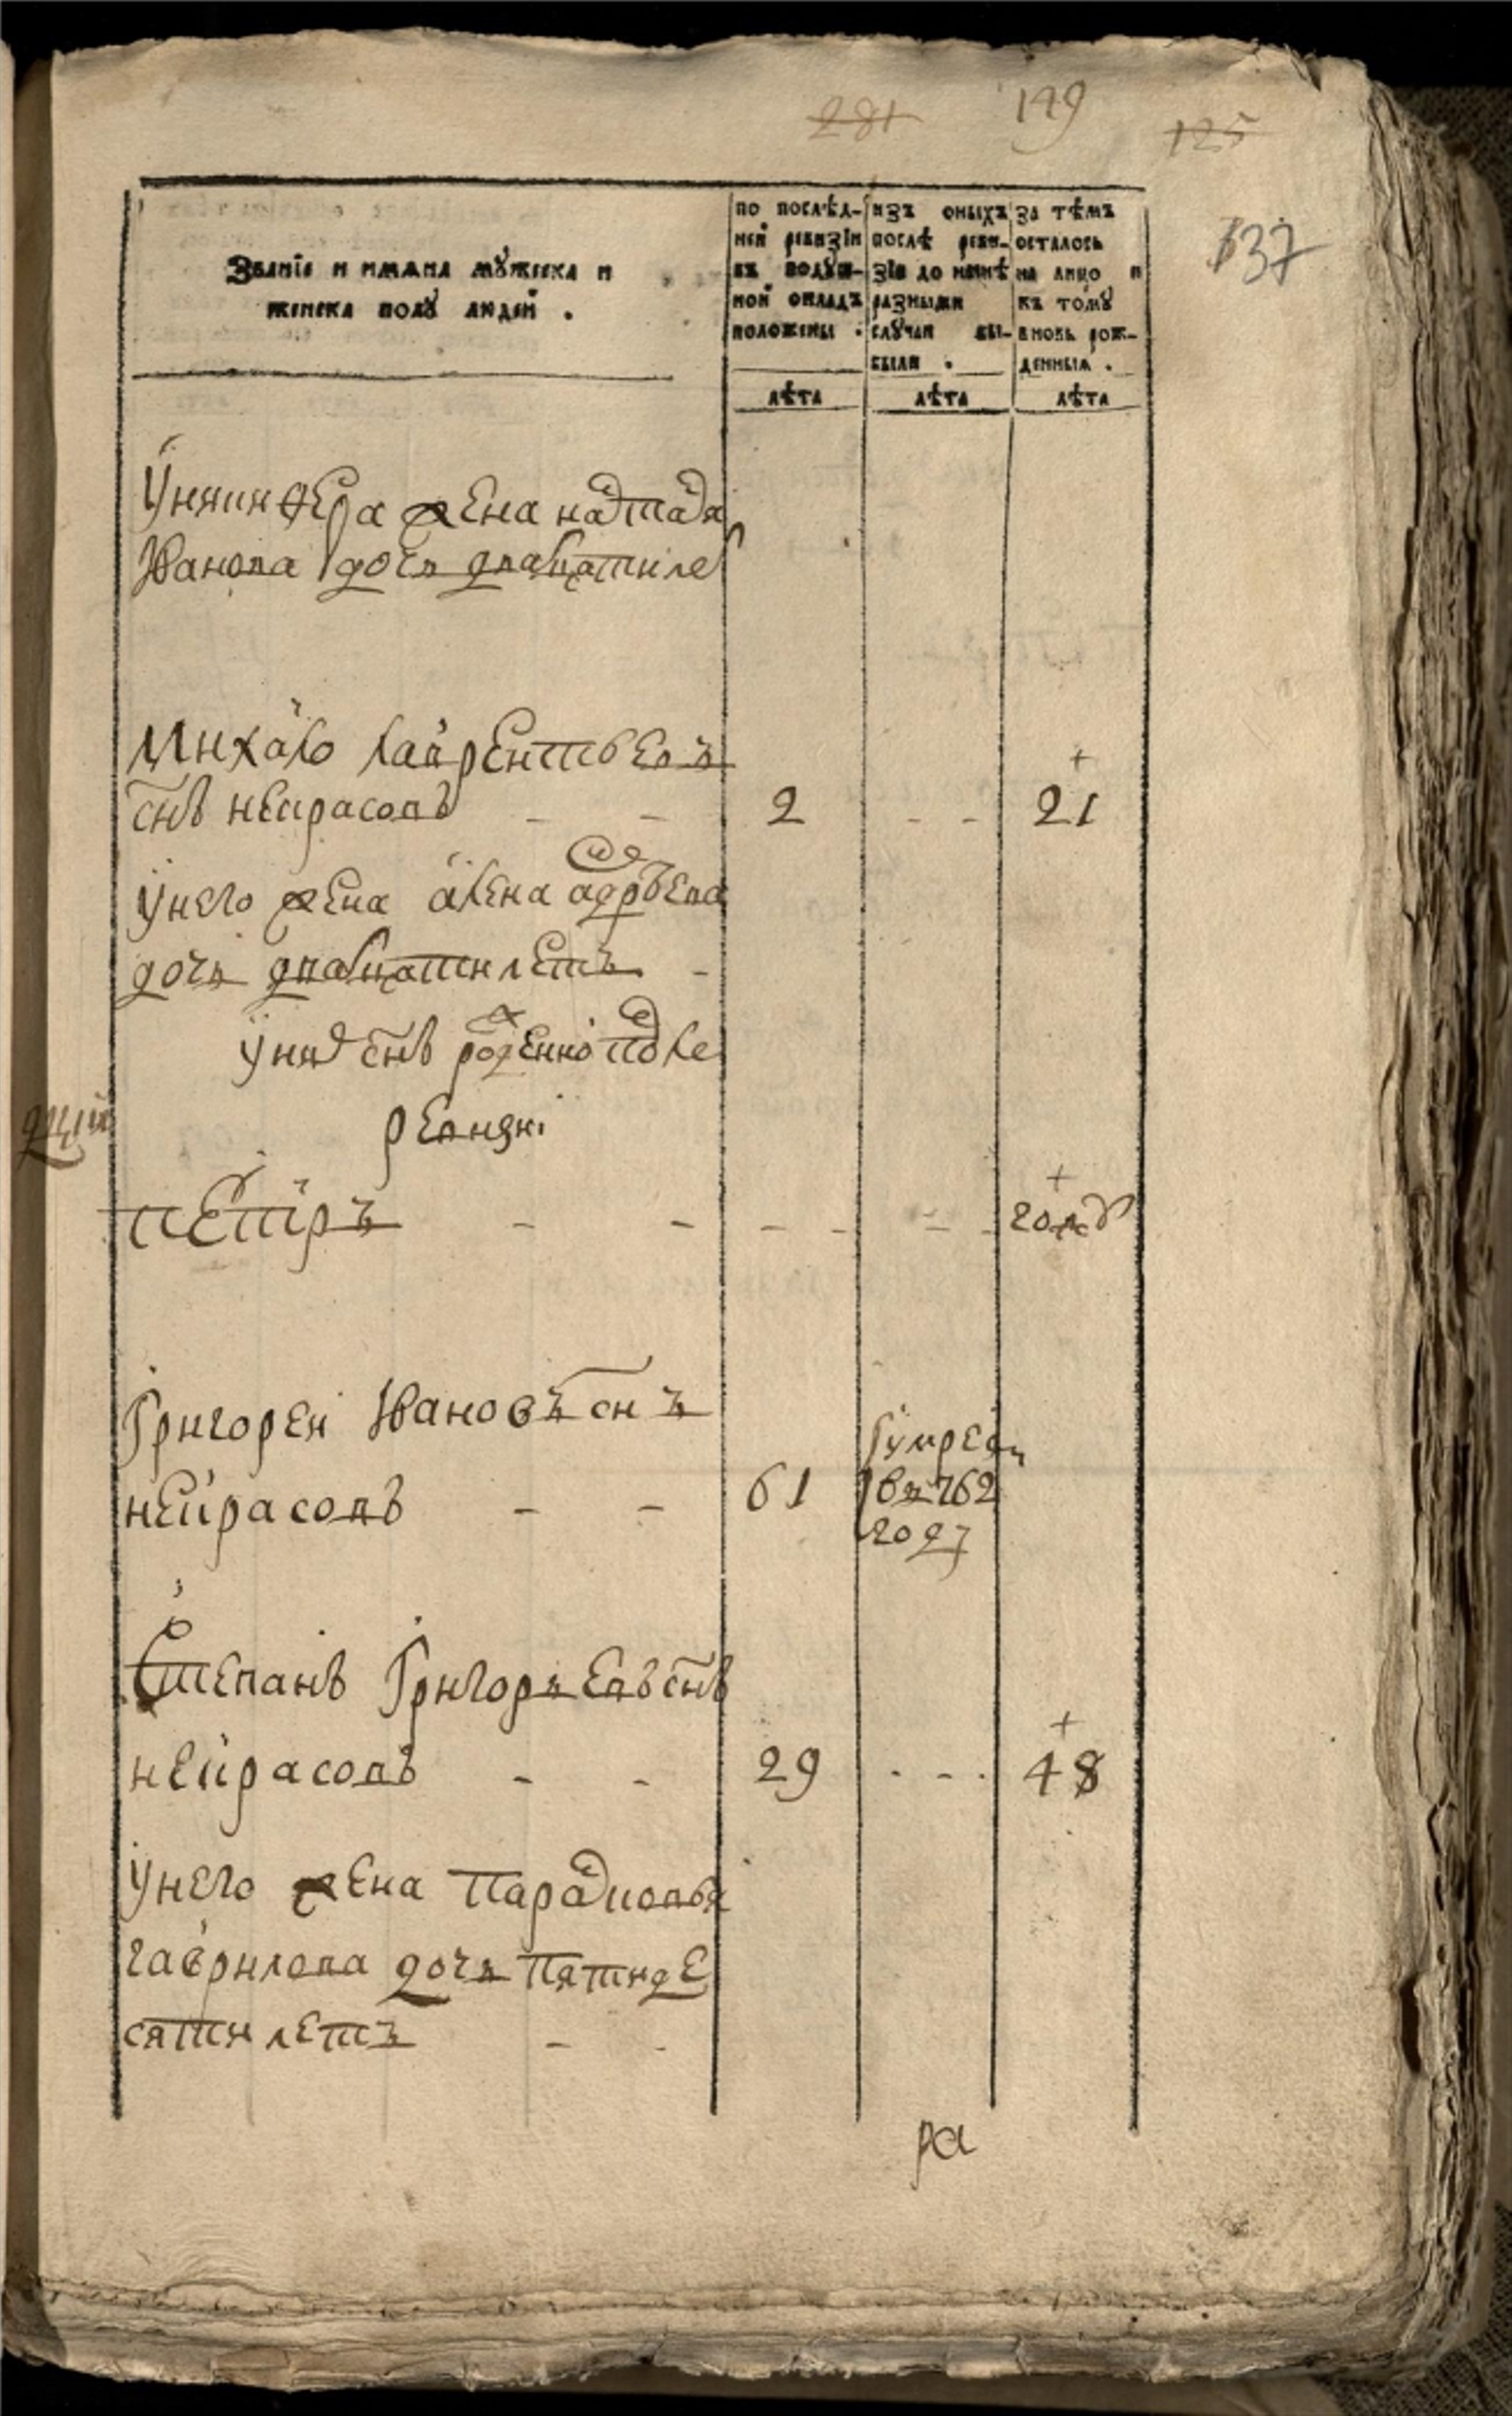 281 149 125
137
Званїе и имѧна мꙋжеска и
женска полꙋ людей .
по послѣд-
ней ревизїи
въ подꙋш-
ной окладъ
положены .
изъ оныхъ
послѣ реви-
зїи до нынѣ
разными
случаи вы-
были .
за тѣмъ
осталось
на лицо и
къ томꙋ
вновь рож-
денныѧ .
лѣта лѣта лѣта
жена
Иванова дочь дватцатиле
Михаило Лаврентьевъ
снъ некрасовъ - - 2 - - 21
у него жена алена
дочь дватцати летъ -
у них снъ рожденной после
ревизиі
петръ - - - - - - году
Григореи Ивановъ снъ
некрасовъ - - 61 умре
въ 762
году
Степанъ Григорьевъ снъ
некрасовъ - - 29 - - - 48
у него жена парасковья
гаврилова дочь пятиде
сяти летъ - -
ра